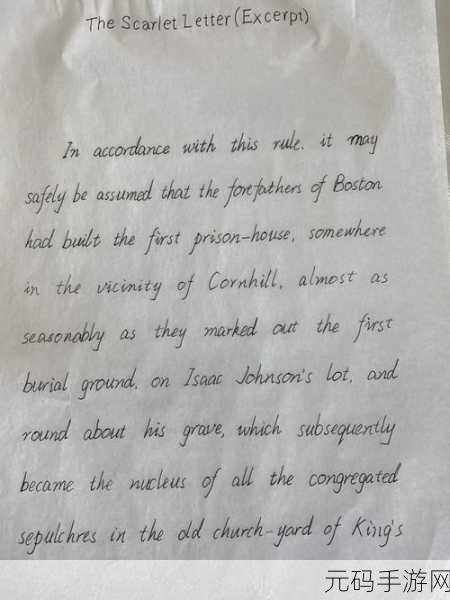 The Scarlet Letter (Excerpt)
In accordance with this rule. it may
safely be assumed that the forefathers of Boston
had built the first prison-house, somewhere
in the vicinity of Cornhill, almost as
seasonably as they marked out the first
burial ground, on Isaac Johnson's lot, and
round about his grave, which subsequently
became the nucleus of all the congregated
sepulchres in the old church-yard of King's
元码手游网